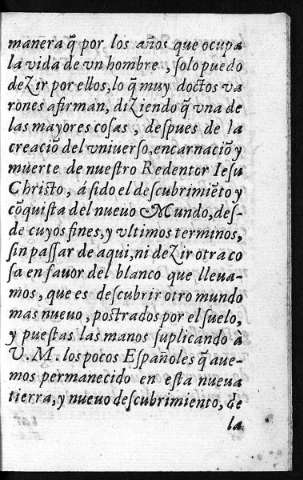 manera q̃ por los años que ocupa
la vida de vn hombre, ſolo puedo
deZir por ellos, lo q̃ muy doctos va
rones afirman, diZiendo q̃ vna de
las mayores coſas, deſpues de la
creaciõ del vniuerſo, encarnaciõ y
muerte de nueſtro Redentor Ieſu
Chriſto, á ſido el deſcubrimiẽto y
cõquiſta del nueuo Mundo, deſ-
de cuyos fines, y vltimos terminos,
ſin paſſar de aqui, ni deZir otra co
ſa en fauor del blanco que lleua-
mos, que es deſcubrir otro mundo
mas nueuo, poſtrados por el ſuelo,
y pueſtas las manos ſuplicando à
V. M. los pocos Eſpañoles q̃ aue-
mos permanecido en eſta nueua
tierra, y nueuo deſcubrimiento, de
la